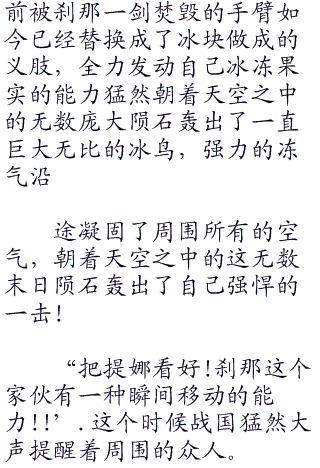 前被刹那一剑焚毁的手臂如
今已经替换成了冰块做成的
义肢，全力发动自己冰冻果
实的能力猛然朝着天空之中
的无数庞大陨石轰出了一直
巨大无比的冰鸟，强力的冻
气沿
途凝固了周围所有的空
气，朝着天空之中的这无数
末日陨石轰出了自己强悍的
一击！
“把提娜看好！刹那这个
家伙有一种瞬间移动的能
力！！’.这个时候战国猛然大
声提醒着周围的众人。